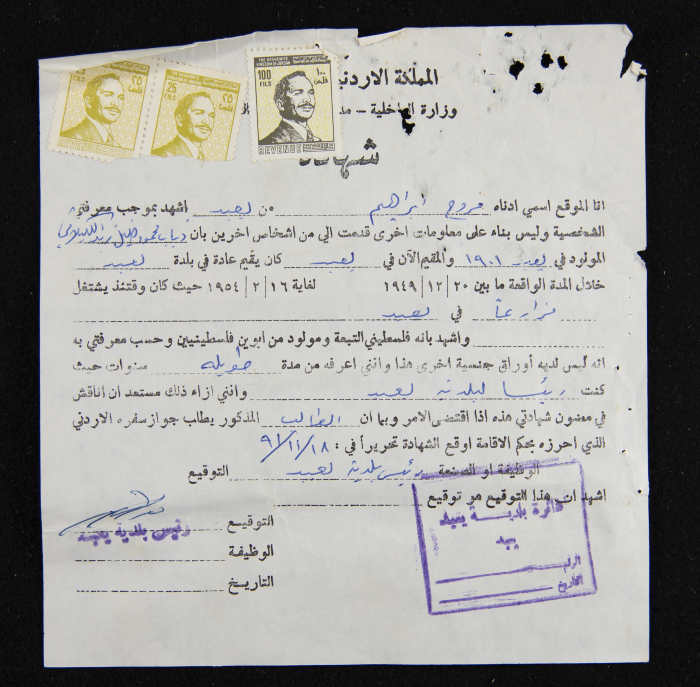 25 FILS
٢٥ فلس
25 FILS
٢٥ فلس
THE HASHEMITE KINGDOM OF JORDAN
100 FILS
١٠٠ فلس
REVENUE
المملكة الاردنية
وزارة الداخلية -
شهادة
انا الموقع اسمي ادناه فروح ابراهيم من يعبد اشهد بموجب معرفتي
الشخصية وليس بناء على معلومات اخرى قدمت الي من اشخاص اخرين بان ذياب محمود خليل زيد الكيلاني
المولود في يعبد ١٩٠١ والمقيم الآن في يعبد كان يقيم عادة في بلدة يعبد
خلال المدة الواقعة ما بين ٢٠ | ١٢ | ١٩٤٩ لغاية ١٦ | ٢ | ١٩٥٤ حيث كان وقتئذ يشتغل
مزارعاً في يعبد
واشهد بانه فلسطيني التبعة ومولود من ابوين فلسطينيين وحسب معرفتي به
انه ليس لديه أوراق جنسية اخرى هذا وانني اعرفه من مدة طويله سنوات حيث
كنت رئيسا لبلدية يعبد وانني ازاء ذلك مستعد ان اناقش
في مضمون شهادتي هذه اذا اقتضى الامر وبما ان الطالب المذكور يطلب جواز سفره الاردني
الذي احرزه بحكم الاقامة اوقع الشهادة تحريراً في : ٩١/١١/١٨
الوظيفة او الصنعة رئيس بلدية يعبد التوقيع
اشهد ان هذا التوقيع هو توقيع
التوقيع
رئيس بلدية يعبد
الوظيفة
التاريخ
دائرة بلدية يعبد
يعبد
الرقم
التاريخ